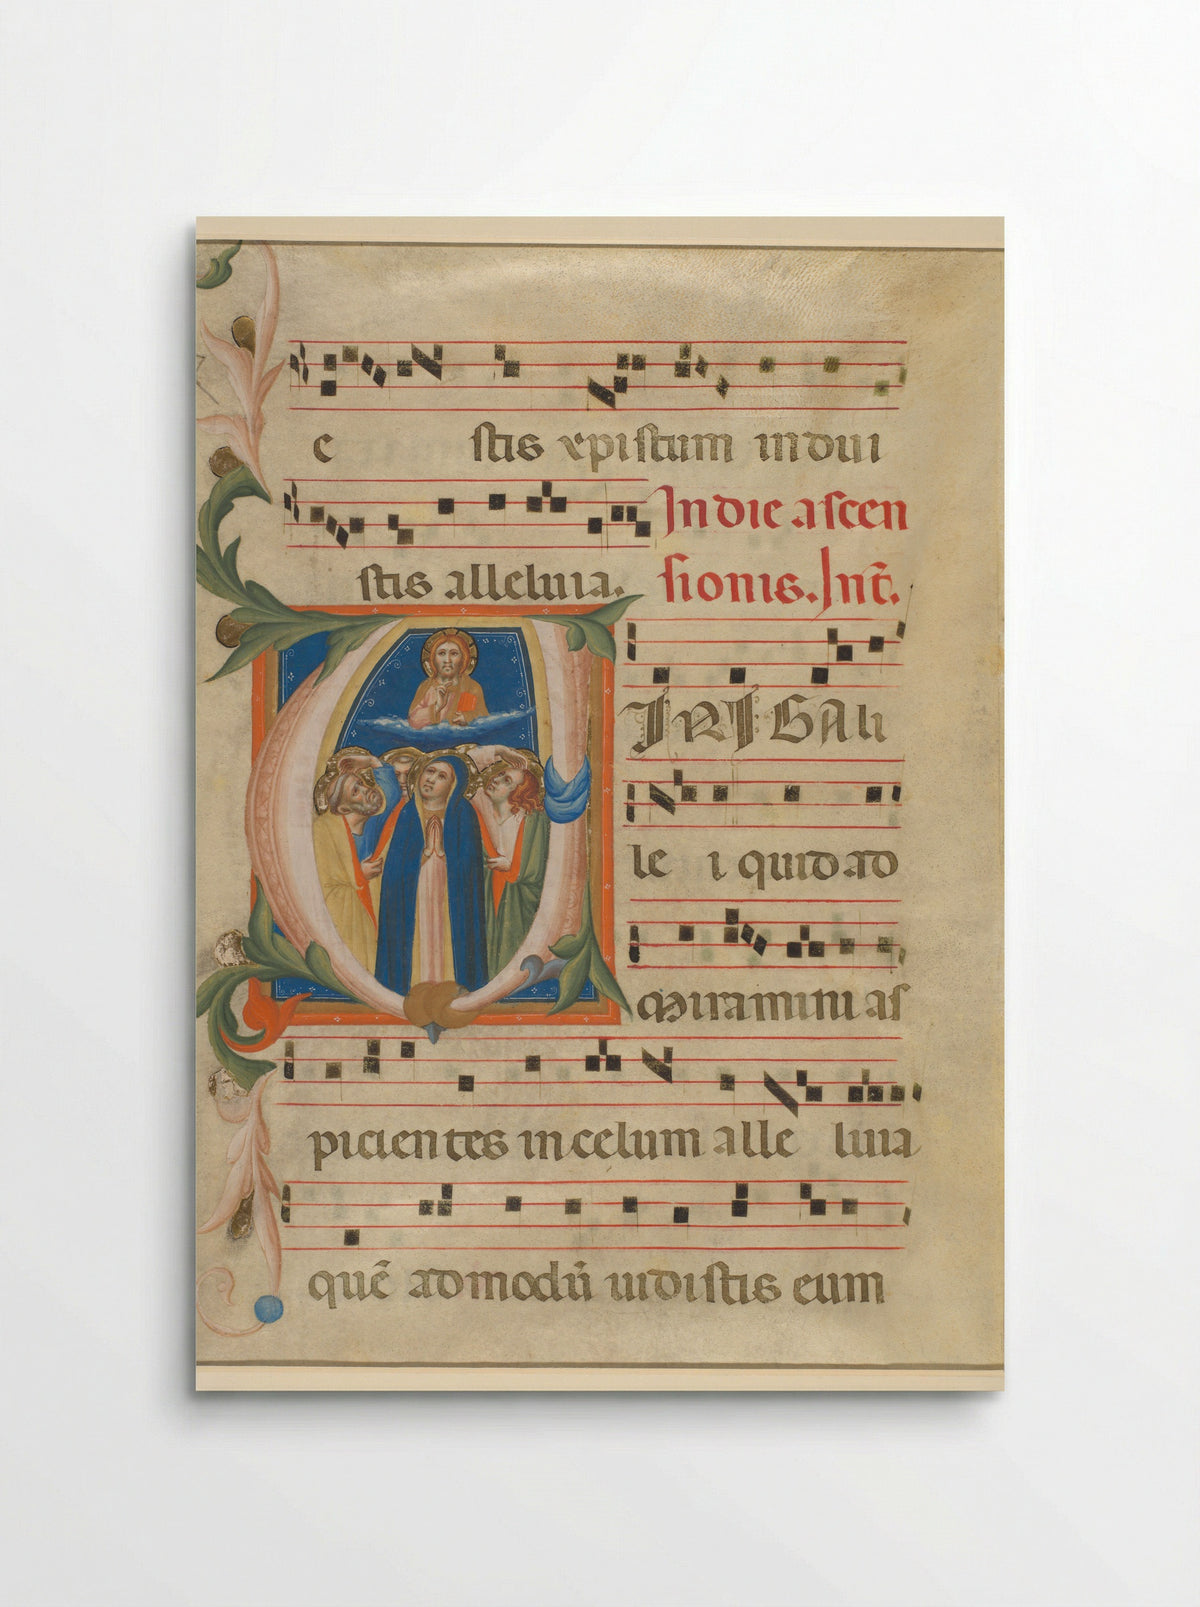 e stis xpistum indui
stis alleluia.
In die ascen
sionis. Int̄.
VIRI GALI
le i quid ad
miramini as
picientes in celum alle luia
quē admodū uidistis eum